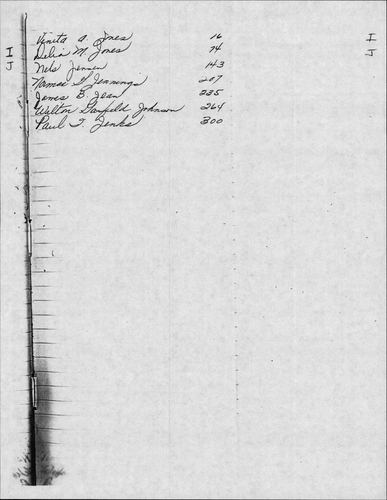 Vinita A. Jones 16
Delia M. Jones 74
Nels Jensen 143
Jennings 207
James B. Jean 235
Welton Garfield Johnson 264
Paul I. Jenks 300
I
J
I
J